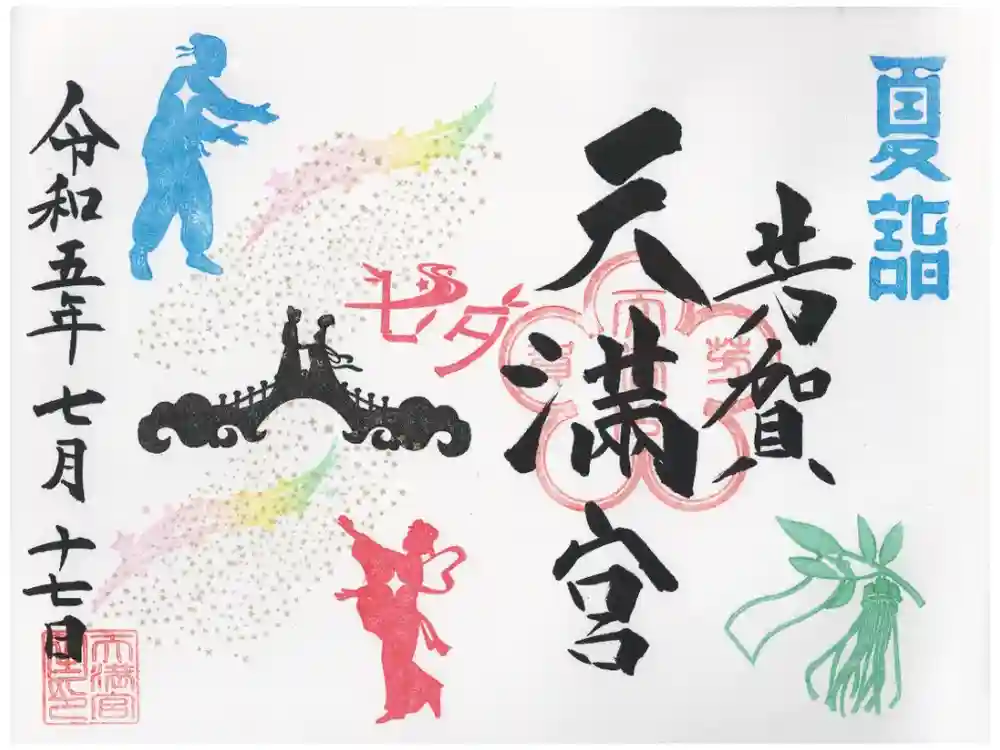 夏詣
芳賀
天満宮
七夕
令和五年七月十七日
天満宮